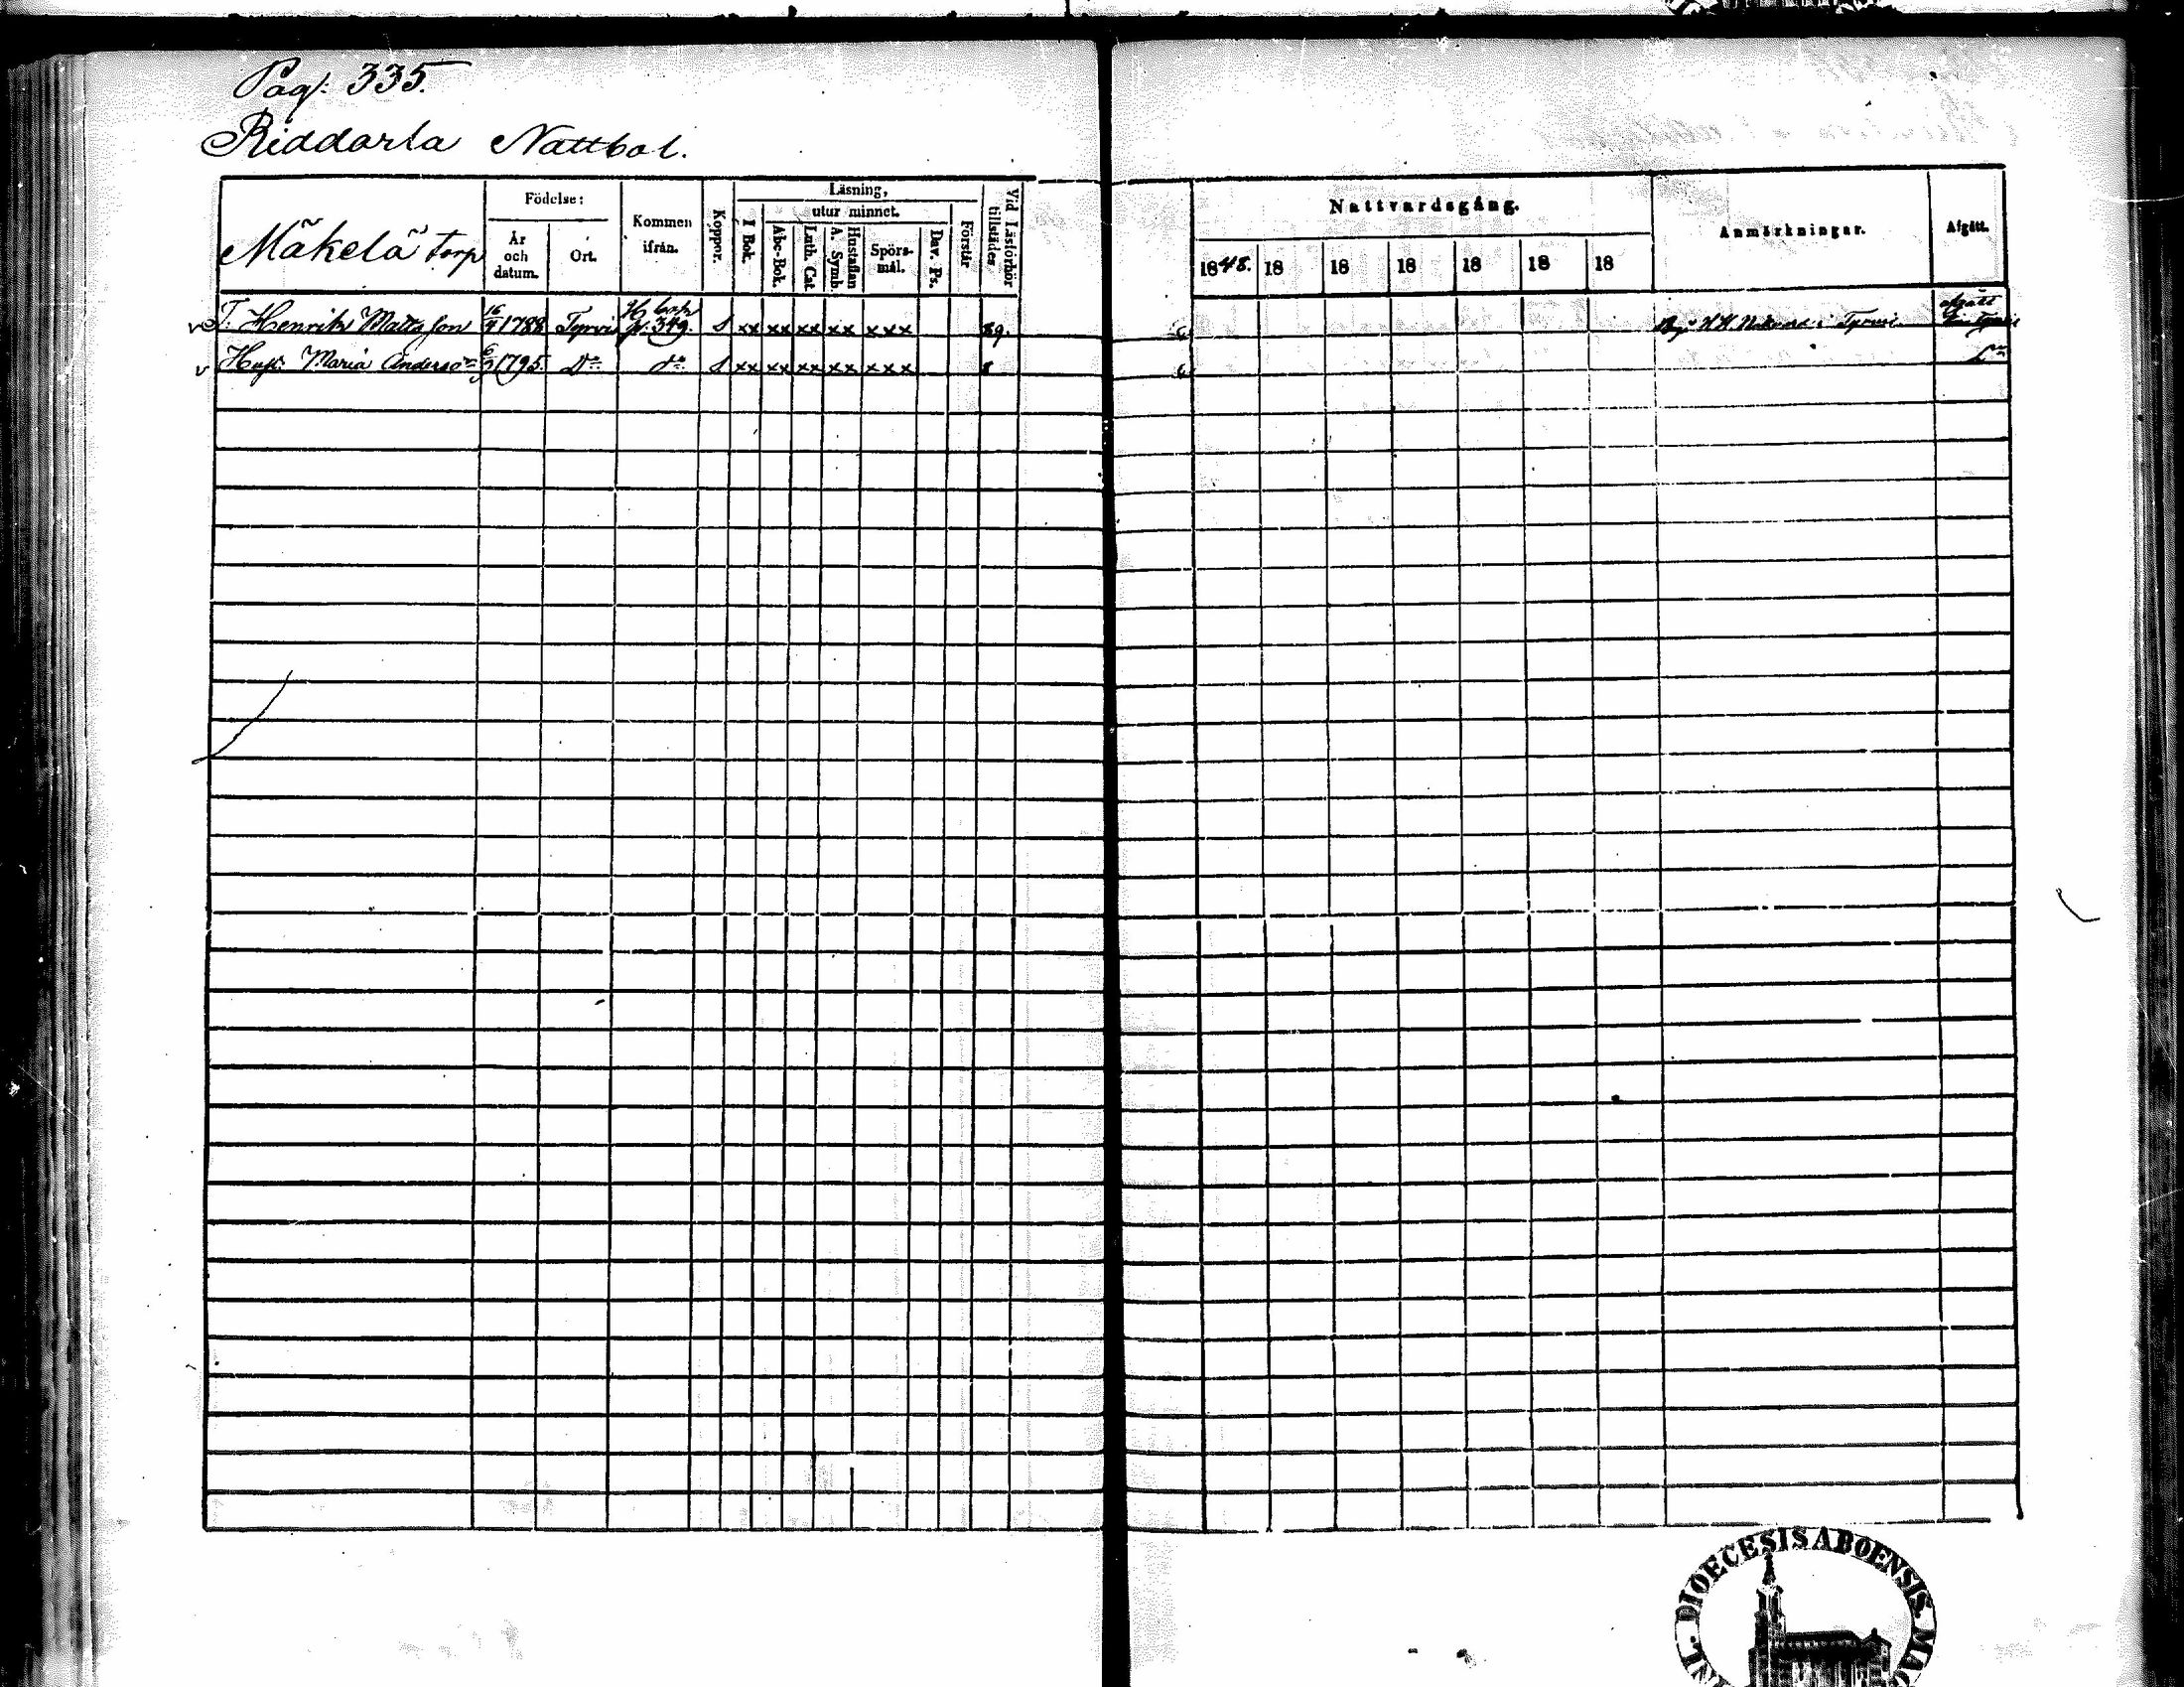 Pag: 335.
Riddarla Nattbol.
Mäkelä torp
Födelse:
År och datum.
Ort.
Kommen ifrån.
Koppor.
Läsning,
I Bok.
utur minnet.
Abc-Bok.
Luth. Cat.
A. Symb.
Hustaflan
Spörs-mål.
Dav. Ps.
Förstår
Vid Läsförhör tillstädes
Nattvardsgång.
1848. 18 18 18 18 18 18
Anmärkningar.
Afgått.
T. Henrik Matts son 16/4 1788 Tyrvis H bok p. 349. S xx xx xx xx xxx 89. i Tyrvis afgått
Hust. Maria Anders 1795. Do do S xx xx xx xx xxx 8
DIOECESIS ABOENSIS